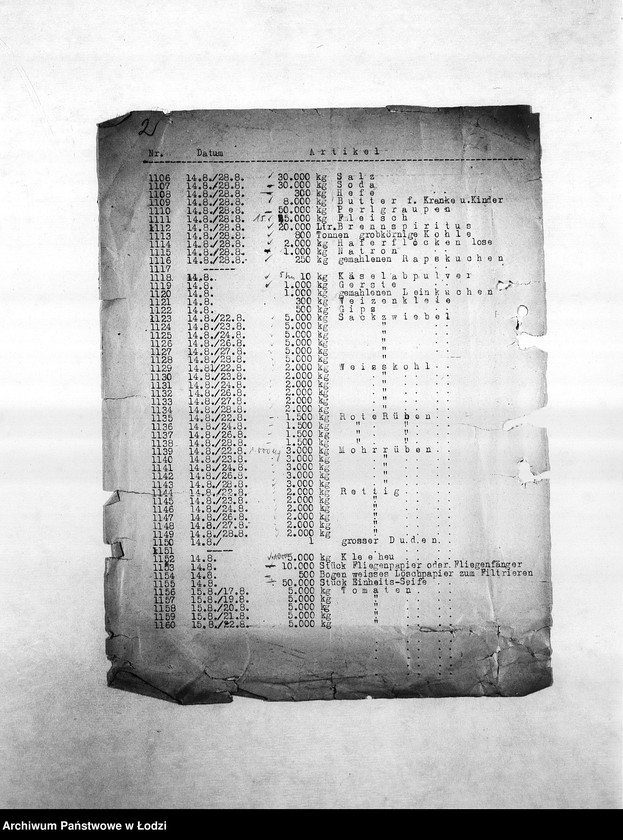 2
Nr. Datum Artikel
1106 14.8./28.8. 30.000 kg Salz
1107 14.8./28.8. 30.000 kg Soda
1108 14.8./28.8. 300 kg Hefe
1109 14.8./28.8. 8.000 kg Butter f. Kranke u.Kinder
1110 14.8./28.8. 50.000 kg Perlgraupen
1111 14.8./28.8. 5.000 kg Fleisch
1112 14.8./28.8. 20.000 Ltr.Brennspiritus
1113 14.8./28.8. 800 Tonnen grobkörnige Kohle
1114 14.8./28.8. 2.000 kg Haferflocken lose
1115 14.8./28.8. 1.000 kg Natron
1116 14.8./28.8. 250 kg gemahlenen Rapskuchen
1117 ------
1118 14.8. 10 kg Käselabpulver
1119 14.8. 1.000 kg Gerste
1120 14.8. 1.000 kg gemahlenen Leinkuchen
1121 14.8. 300 kg Weizenkleie
1122 14.8. 500 kg Gips
1123 14.8./22.8. 5.000 kg Sackzwiebel
1124 14.8./23.8. 5.000 kg "
1125 14.8./24.8. 5.000 kg "
1126 14.8./26.8. 5.000 kg "
1127 14.8./27.8. 5.000 kg "
1128 14.8./28.8. 5.000 kg "
1129 14.8./22.8. 2.000 kg Weisskohl
1130 14.8./23.8. 2.000 kg "
1131 14.8./24.8. 2.000 kg "
1132 14.8./26.8. 2.000 kg "
1133 14.8./27.8. 2.000 kg "
1134 14.8./28.8. 2.000 kg "
1135 14.8./22.8. 1.500 kg Rote Rüben
1136 14.8./24.8. 1.500 kg " "
1137 14.8./26.8. 1.500 kg " "
1138 14.8./28.8. 1.500 kg " "
1139 14.8./22.8. 3.000 kg Mohrrüben
1140 14.8./23.8. 3.000 kg "
1141 14.8./24.8. 3.000 kg "
1142 14.8./26.8. 3.000 kg "
1143 14.8./28.8. 3.000 kg "
1144 14.8./22.8. 2.000 kg Rettig
1145 14.8./23.8. 2.000 kg "
1146 14.8./24.8. 2.000 kg "
1147 14.8./26.8. 2.000 kg "
1148 14.8./27.8. 2.000 kg "
1149 14.8./28.8. 2.000 kg "
1150 14.8./ 1 grosser Duden
1151 ------
1152 14.8. 5.000 kg Kleeheu
1153 14.8. 10.000 Stück Fliegenpapier oder Fliegenfänger
1154 14.8. 500 Bogen weisses Löschpapier zum Filtrieren
1155 14.8. 50.000 Stück Einheits-Seife
1156 15.8./17.8. 5.000 kg Tomaten
1157 15.8./19.8. 5.000 kg "
1158 15.8./20.8. 5.000 kg "
1159 15.8./21.8. 5.000 kg "
1160 15.8./22.8. 5.000 kg "
Archiwum Państwowe w Łodzi